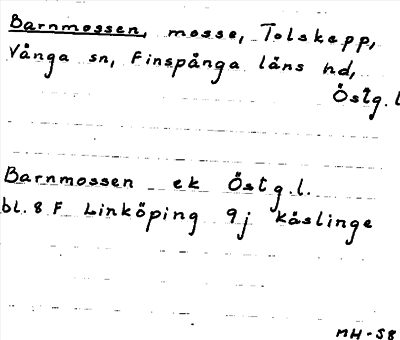 Barnmossen, mosse, Tolskepp,
Vånga sn, Finspånga läns hd,
Östg.l
Barnmossen ek Östg.l.
bl. 8 F Linköping 9j Kåslinge
MH-58